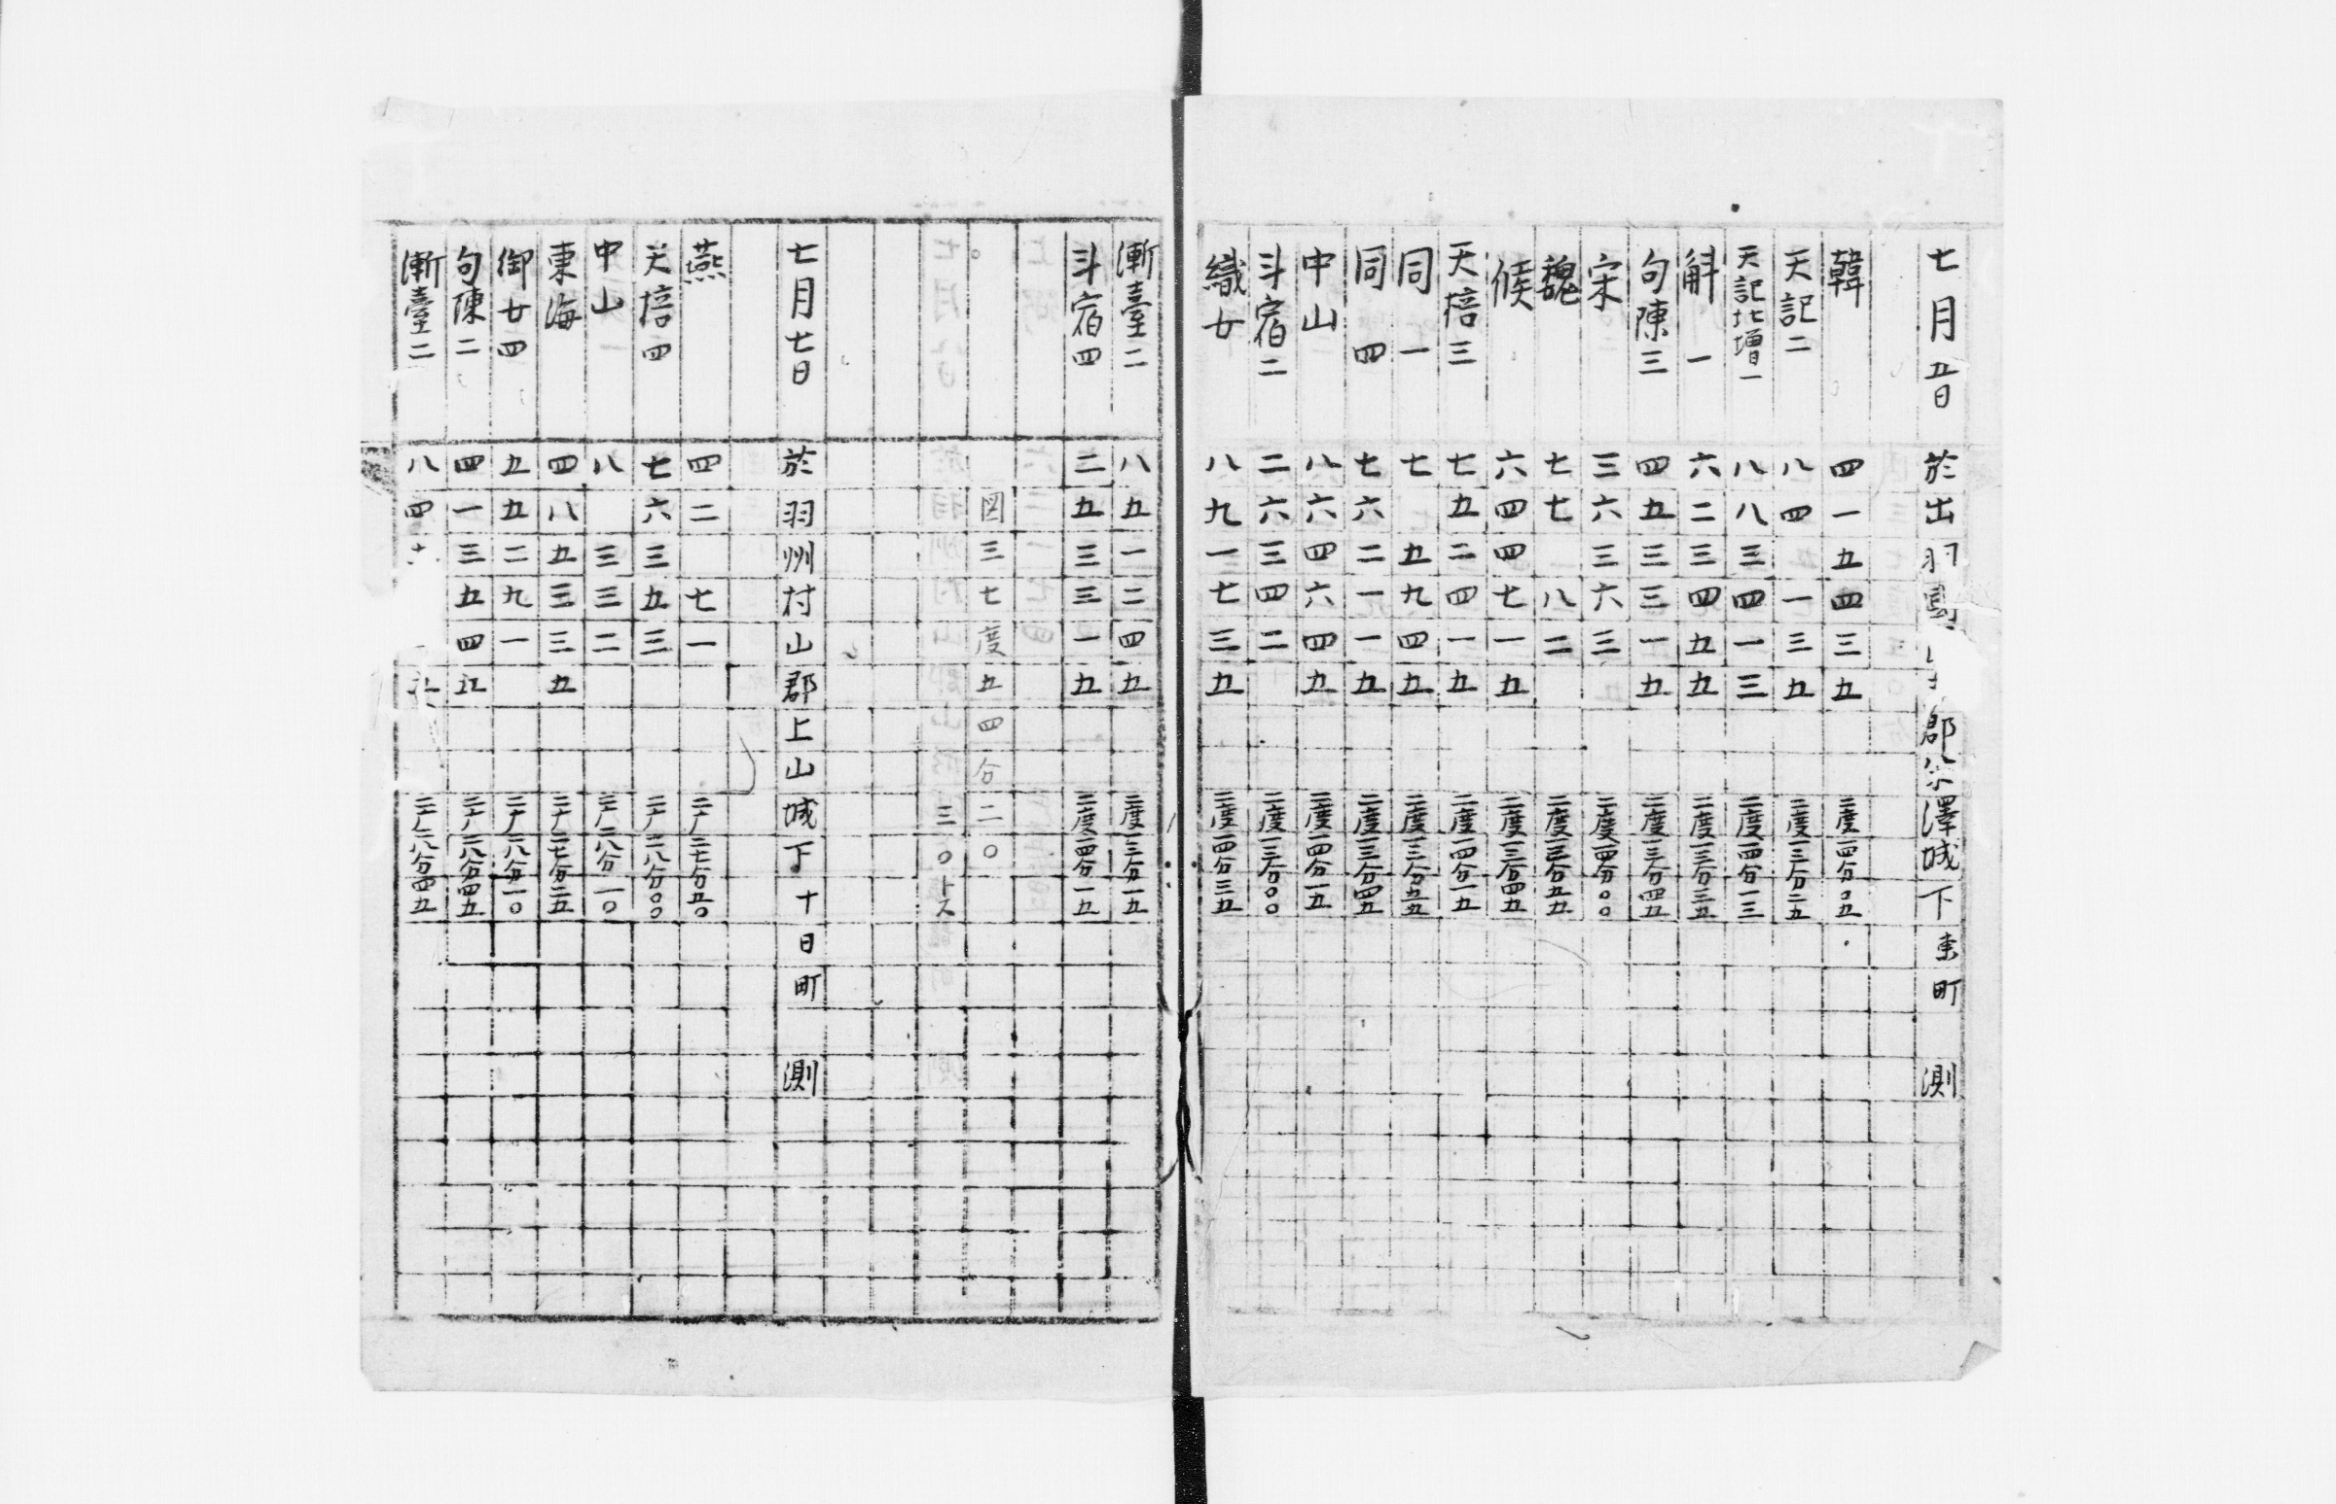 七月五日 於出羽國 郡米澤城下東町 測
韓 四一五四三五 三度一四分〇五
天記二 八四 一三五 三度一三分二五
天記北增一 八八三四一三 三度一四分一三
斛一 六二三四五五 三度一三分三五
句陳三 四五三三一五 三度一三分四五
宋 三六三六三 三度一四分〇〇
魏 七七 八二 三度一三分五五
候 六四四七一五 三度一三分四五
天棓三 七五二四一五 三度一四分一五
同一 七 五九四五 三度一三分五五
同四 七六二一一五 三度一三分四五
中山 八六四六四五 三度一四分一五
斗宿二 二六三四二 三度一三分〇〇
織女 八九一七三五 三度一四分三五
漸臺二 八五一二四五 三度一三分一五
斗宿四 二五三三一五 三度一四分一五
図三七度五四分二〇
三〇トス
七月七日 於羽州村山郡上山城下十日町 測
燕 四二 七一 二七分五〇
天棓四 七六三五三 二八分〇〇
中山 八 三三二 二八分一〇
東海 四八五三三五 二七分三五
御女四 五五二九一 二八分一〇
句陳二 四一三五四 二八分四五
漸臺二 八四 二八分四五